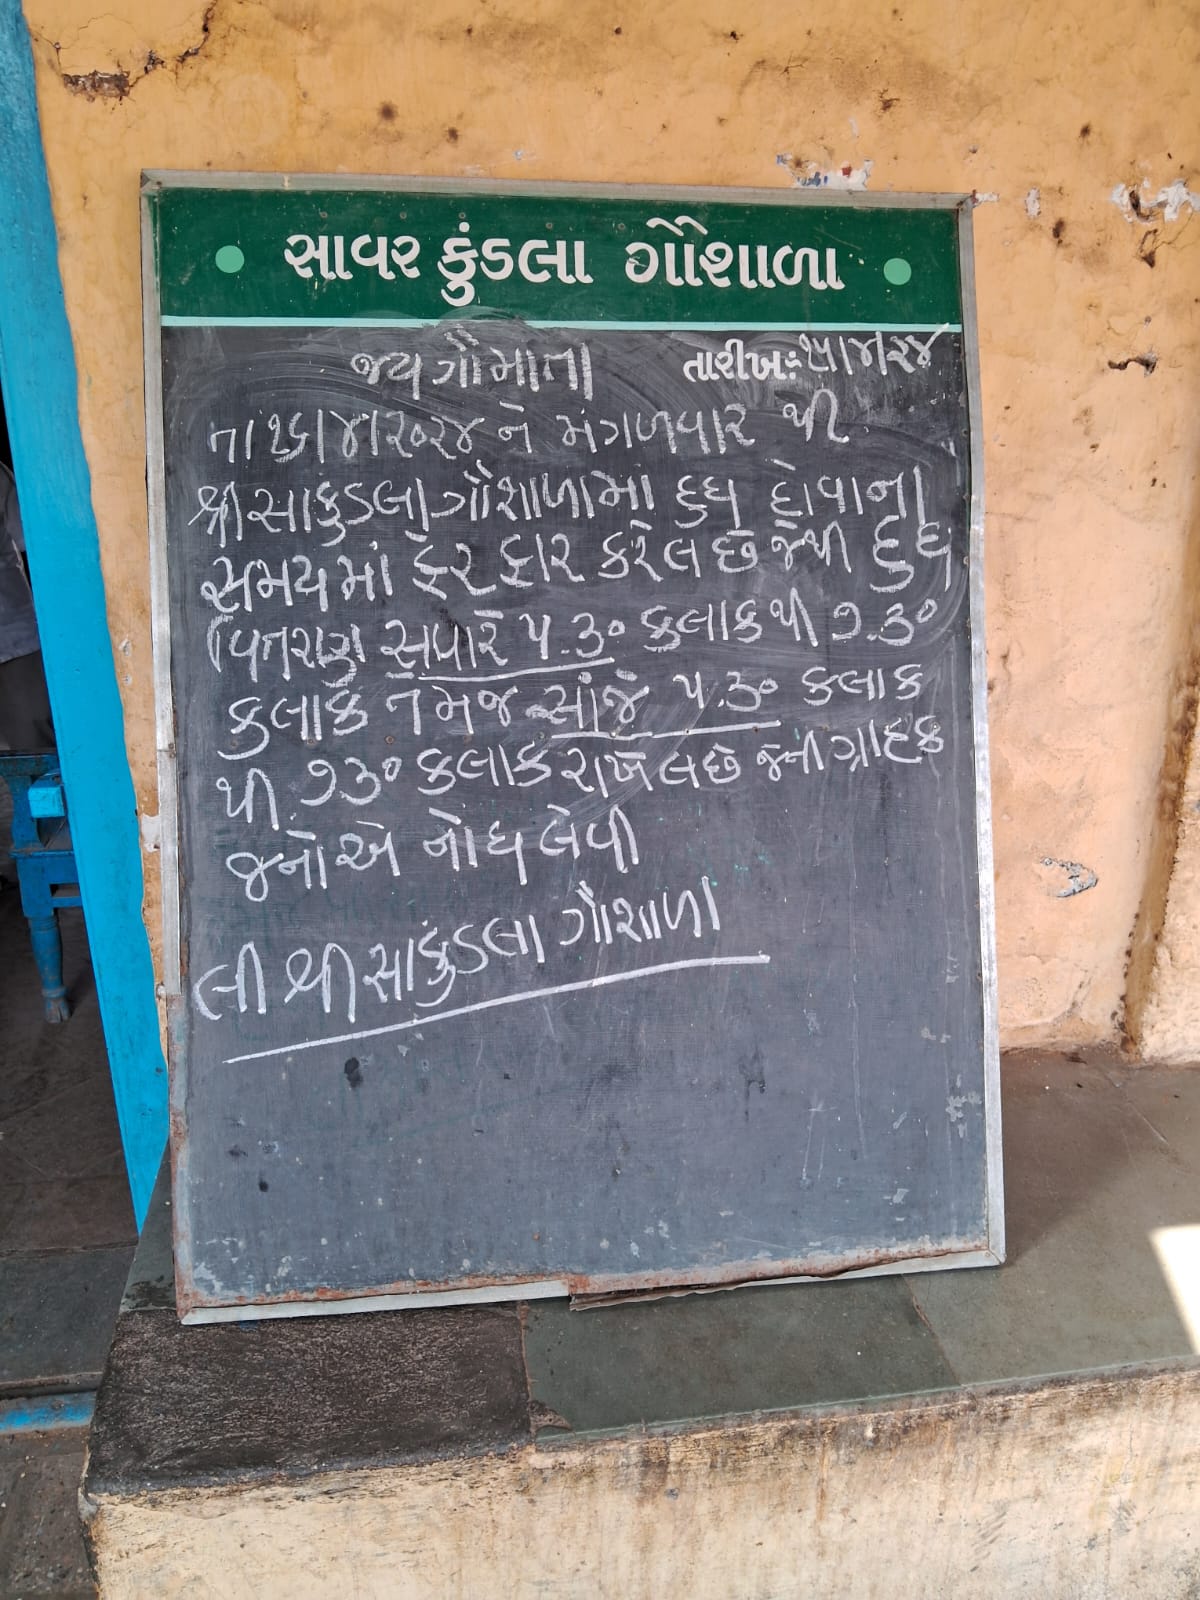 સાવર કુંડલા ગૌશાળા
જય ગૌમાતા તારીખ: ૧૫/૪/૨૪
તા ૧૬/૪/૨૦૨૪ ને મંગળવાર થી
શ્રી સા કુંડલા ગૌશાળામાં દુધ દોવાના
સમય માં ફેર ફાર કરેલ છે જેથી દુધ
વિતરણ સવારે ૫.૩૦ કલાક થી ૭.૩૦
કલાક તેમજ સાંજે ૫.૩૦ કલાક
થી ૭.૩૦ કલાક રાખેલ છે જેની ગ્રાહક
જનોએ નોધ લેવી
લી શ્રી સા કુંડલા ગૌશાળા